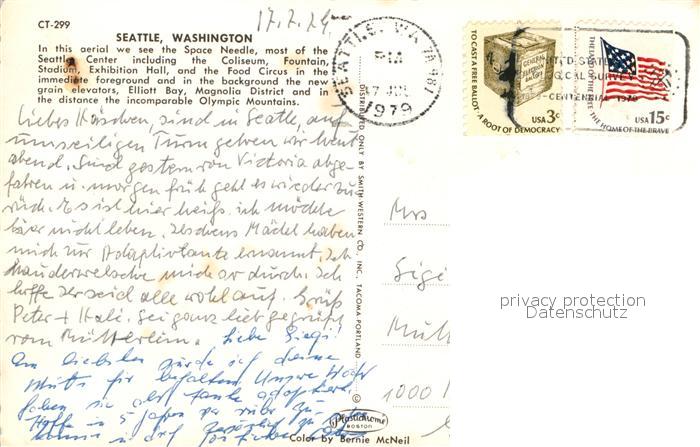 17.7.79
CT-299
SEATTLE, WASHINGTON
In this aerial we see the Space Needle, most of the
Seattle Center including the Coliseum, Fountain,
Stadium, Exhibition Hall, and the Food Circus in the
immediate foreground and in the background the new
grain elevators, Elliott Bay, Magnolia District and in
the distance the incomparable Olympic Mountains.
SEATTLE, WA 981
PM
17
1979
TO CAST A FREE BALLOT · A ROOT OF DEMOCRACY
USA 3c
THE LAND OF THE THE HOME OF THE BRAVE
USA 15c
CENTENNIAL 1979
DISTRIBUTED ONLY BY SMITH-WESTERN CO., INC., TACOMA-PORTLAND
Liebes Häschen, sind in Seattle, auf
Turm gehen wir heut
abend. Sind gestern von Victoria abge-
fahren u. morgen früh geht es wieder zu-
rück. Es ist hier heiß. ich möchte
hier nicht leben. Mädel haben
mich zur Adoptivtante ernannt. Ich
kauderwelsche mich so durch. Ich
hoffe Ihr seid alle wohlauf. Grüß
Peter + Kali. Sei ganz lieb gegrüßt
vom Mütterlein.
Liebe Sigi!
Am liebsten würde ich deine
Mutti für behalten. Unsere
haben sie als tante adoptiert.
in 5 Jahren
Mrs
Sigi
1000
privacy protection
Datenschutz
Plastichrome
BOSTON
Color by Bernie McNeil